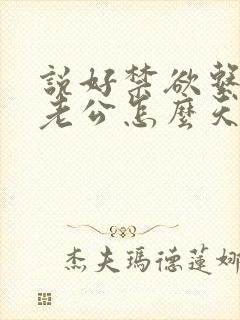 說好禁欲繫
老公怎麼天
杰夫瑪德蓮娜